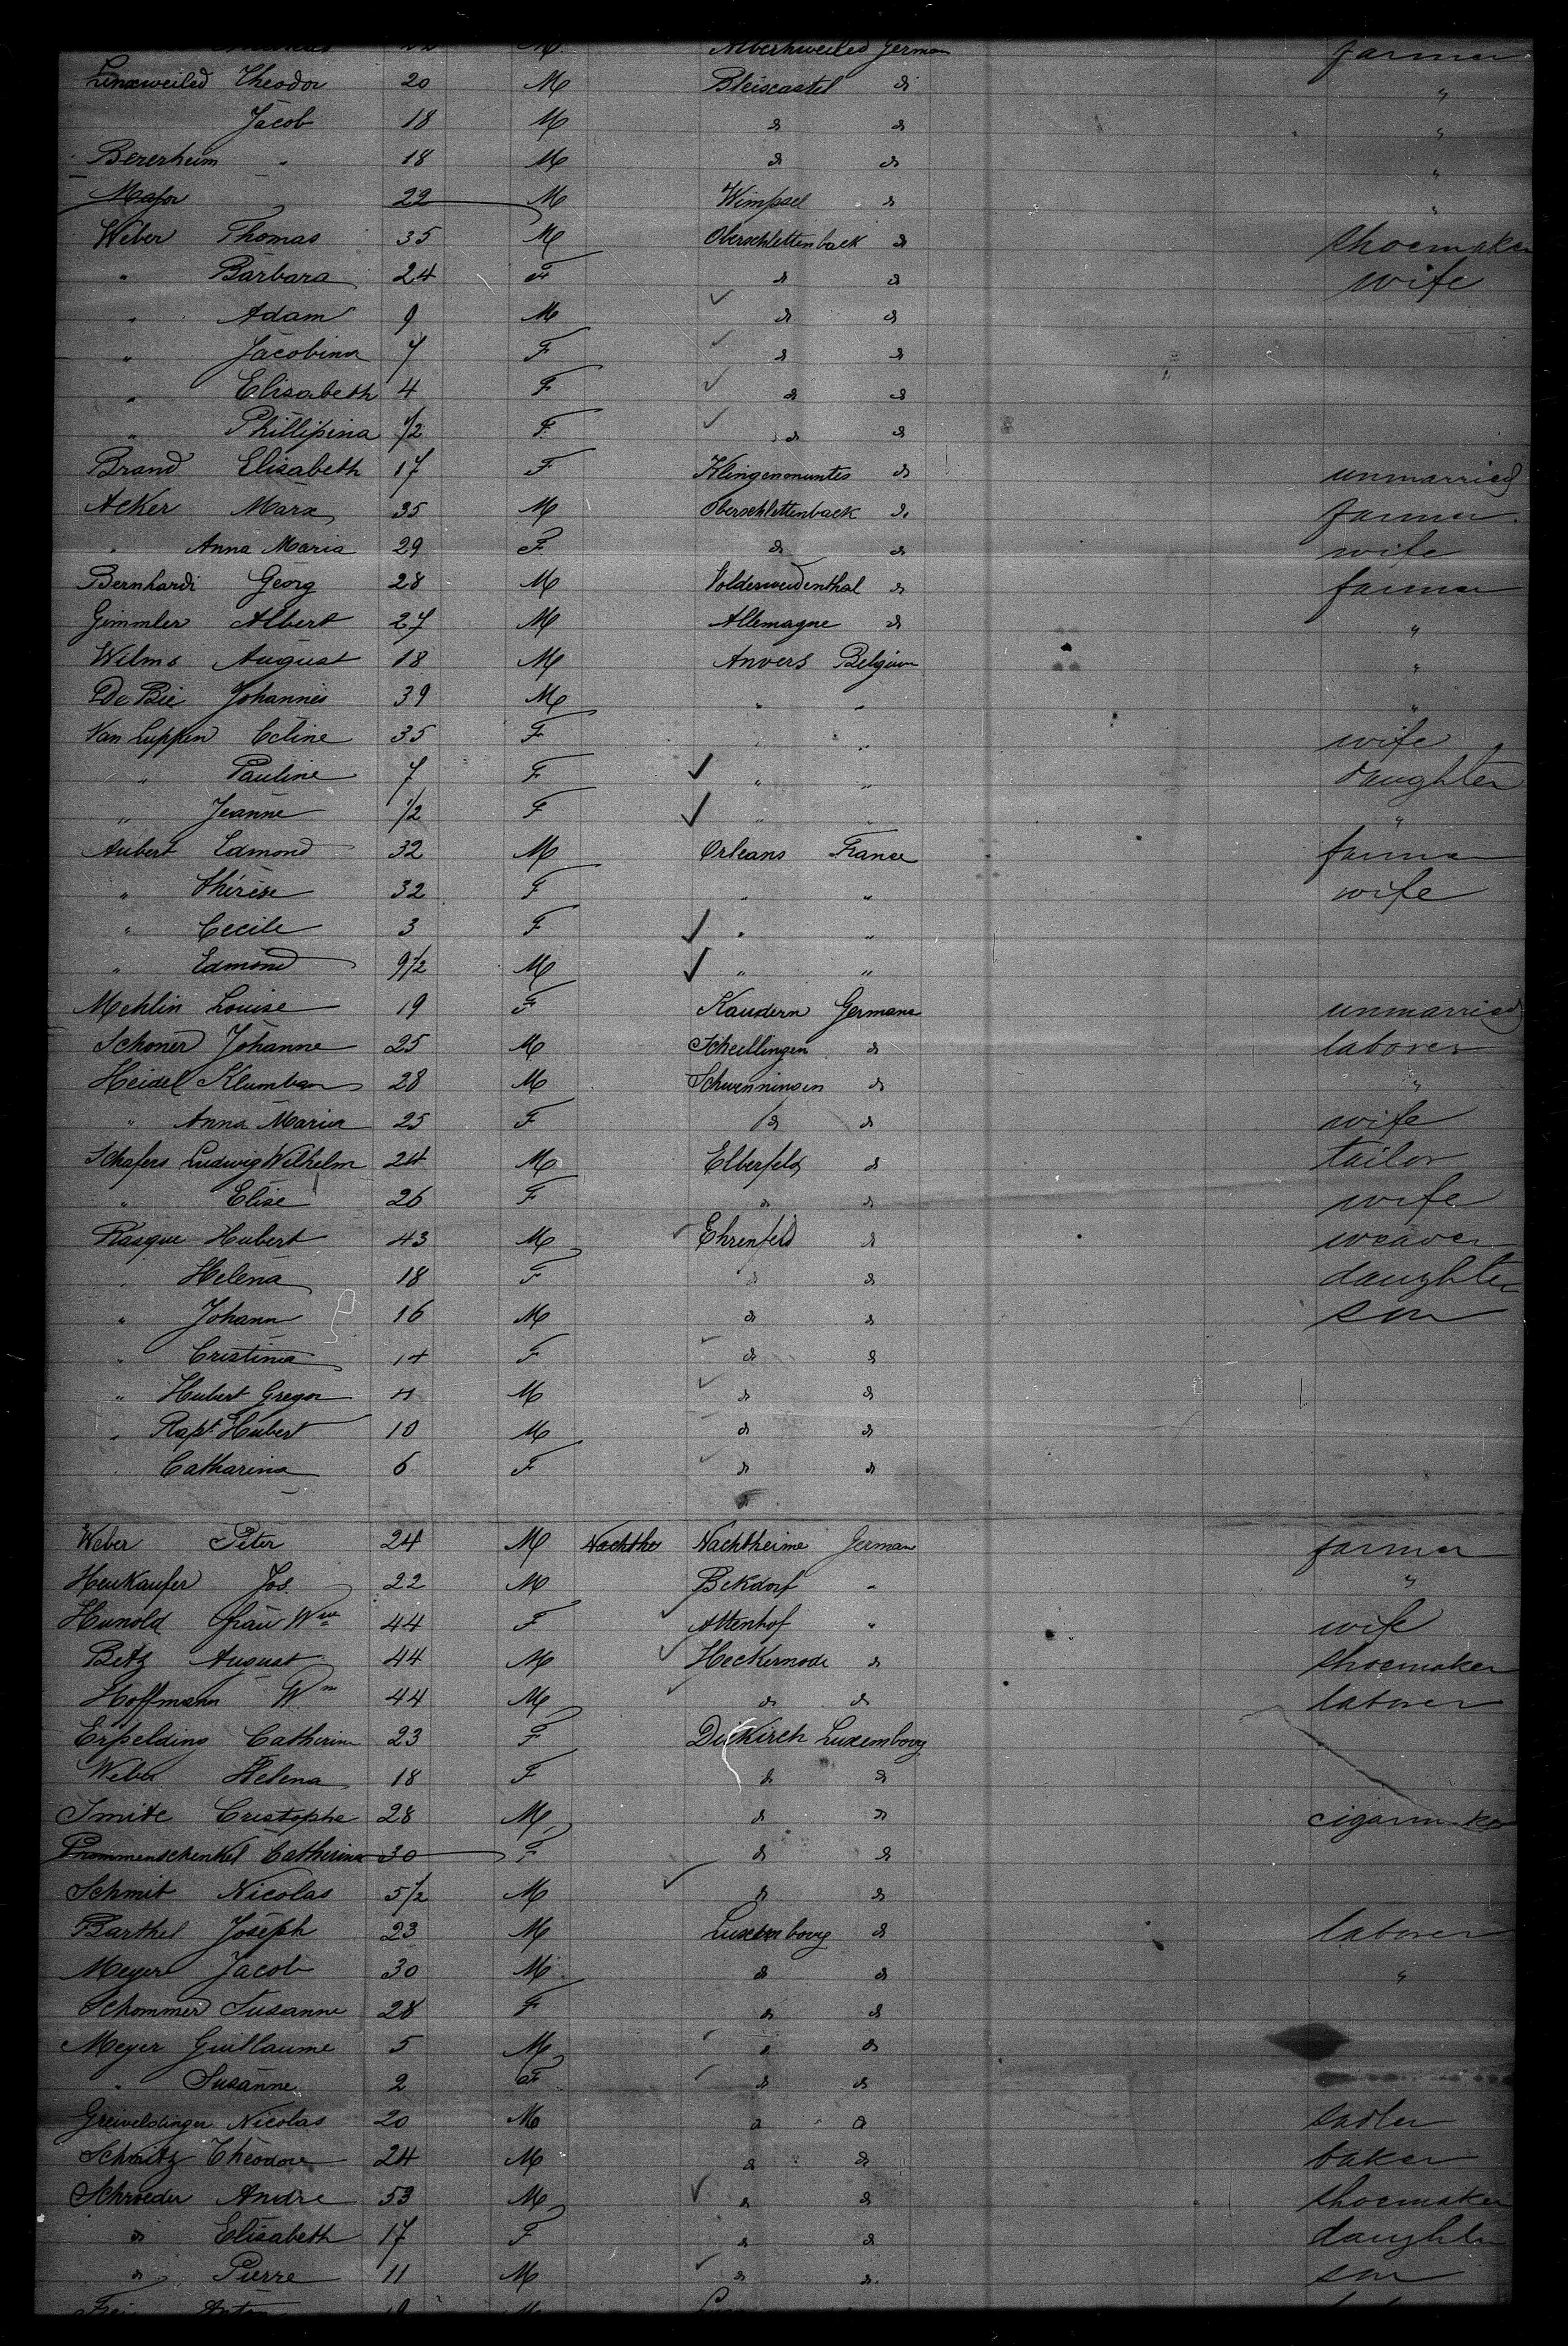 22 M. Albershweiled German farmer
Linxweiled Theodor 20 M Bleiscastel do "
Jacob 18 M do do "
Bererheim " 18 M do do "
Major 22 M Wimpsel do "
Weber Thomas 35 M Oberschlettenback do shoemaker
" Barbara 24 F do do wife
" Adam 9 M do do
" Jacobina 7 F do do
" Elisabeth 4 F do do
" Phillipina 1/2 F do do
Brand Elisabeth 17 F Klingenmuntes do unmarried
Acker Marx 35 M Oberschlettenback do farmer
" Anna Maria 29 F do do wife
Bernhardi Georg 28 M Volderweidenthal do farmer
Gimmler Albert 27 M Allemagne do "
Wilms August 18 M Anvers Belgium "
De Bie Johannes 39 M " " "
Van Luppen Celine 35 F " " wife
" Pauline 7 F " " daughter
" Jeanne 1/2 F " " "
Aubert Edmond 32 M Orleans France farmer
" Thérèse 32 F " " wife
" Cecile 3 F " "
" Edmond 9 1/2 M " "
Mehlin Louise 19 F Kandern Germane unmarried
Schoner Johanne 25 M Schellingen do laborer
Heidel Klumban 28 M Schwenninsen do "
" Anna Maria 25 F do do wife
Schafers Ludwig Wilhelm 24 M Elberfeld do tailor
" Elise 26 F do do wife
Rasque Hubert 43 M Ehrenfeld do weaver
" Helena 18 F do do daughter
" Johann 16 M do do son
" Cristina 14 F do do
" Hubert Gregor 11 M do do
" Rapt Hubert 10 M do do
" Catharina 6 F do do
do
Weber Peter 24 M Nachthe Nachtheime German farmer
Heukaufer Jos. 22 M Bekdorf " "
Hunold frau Wwe 44 F Attenhof " wife
Betz August 44 M Heckernode do shoemaker
Hoffmann Wm 44 M do do laborer
Erpelding Catherine 23 F Diekirch Luxembourg
Weber Helena 18 F do do
Smite Cristophe 28 M do do cigarmaker
Prommenschenkel Catherine 30 F do do
Schmit Nicolas 5 1/2 M do do
Barthel Joseph 23 M Luxembourg do laborer
Meyer Jacob 30 M do do "
Schommer Susanne 28 F do do
Meyer Guillaume 5 M do do
" Susanne 2 F do do
Greiveldinger Nicolas 20 M do do sadler
Schmitz Théodore 24 M do do baker
Schroeder Andre 53 M do do shoemaker
do Elisabeth 17 F do do daughter
do Pierre 11 M do do son